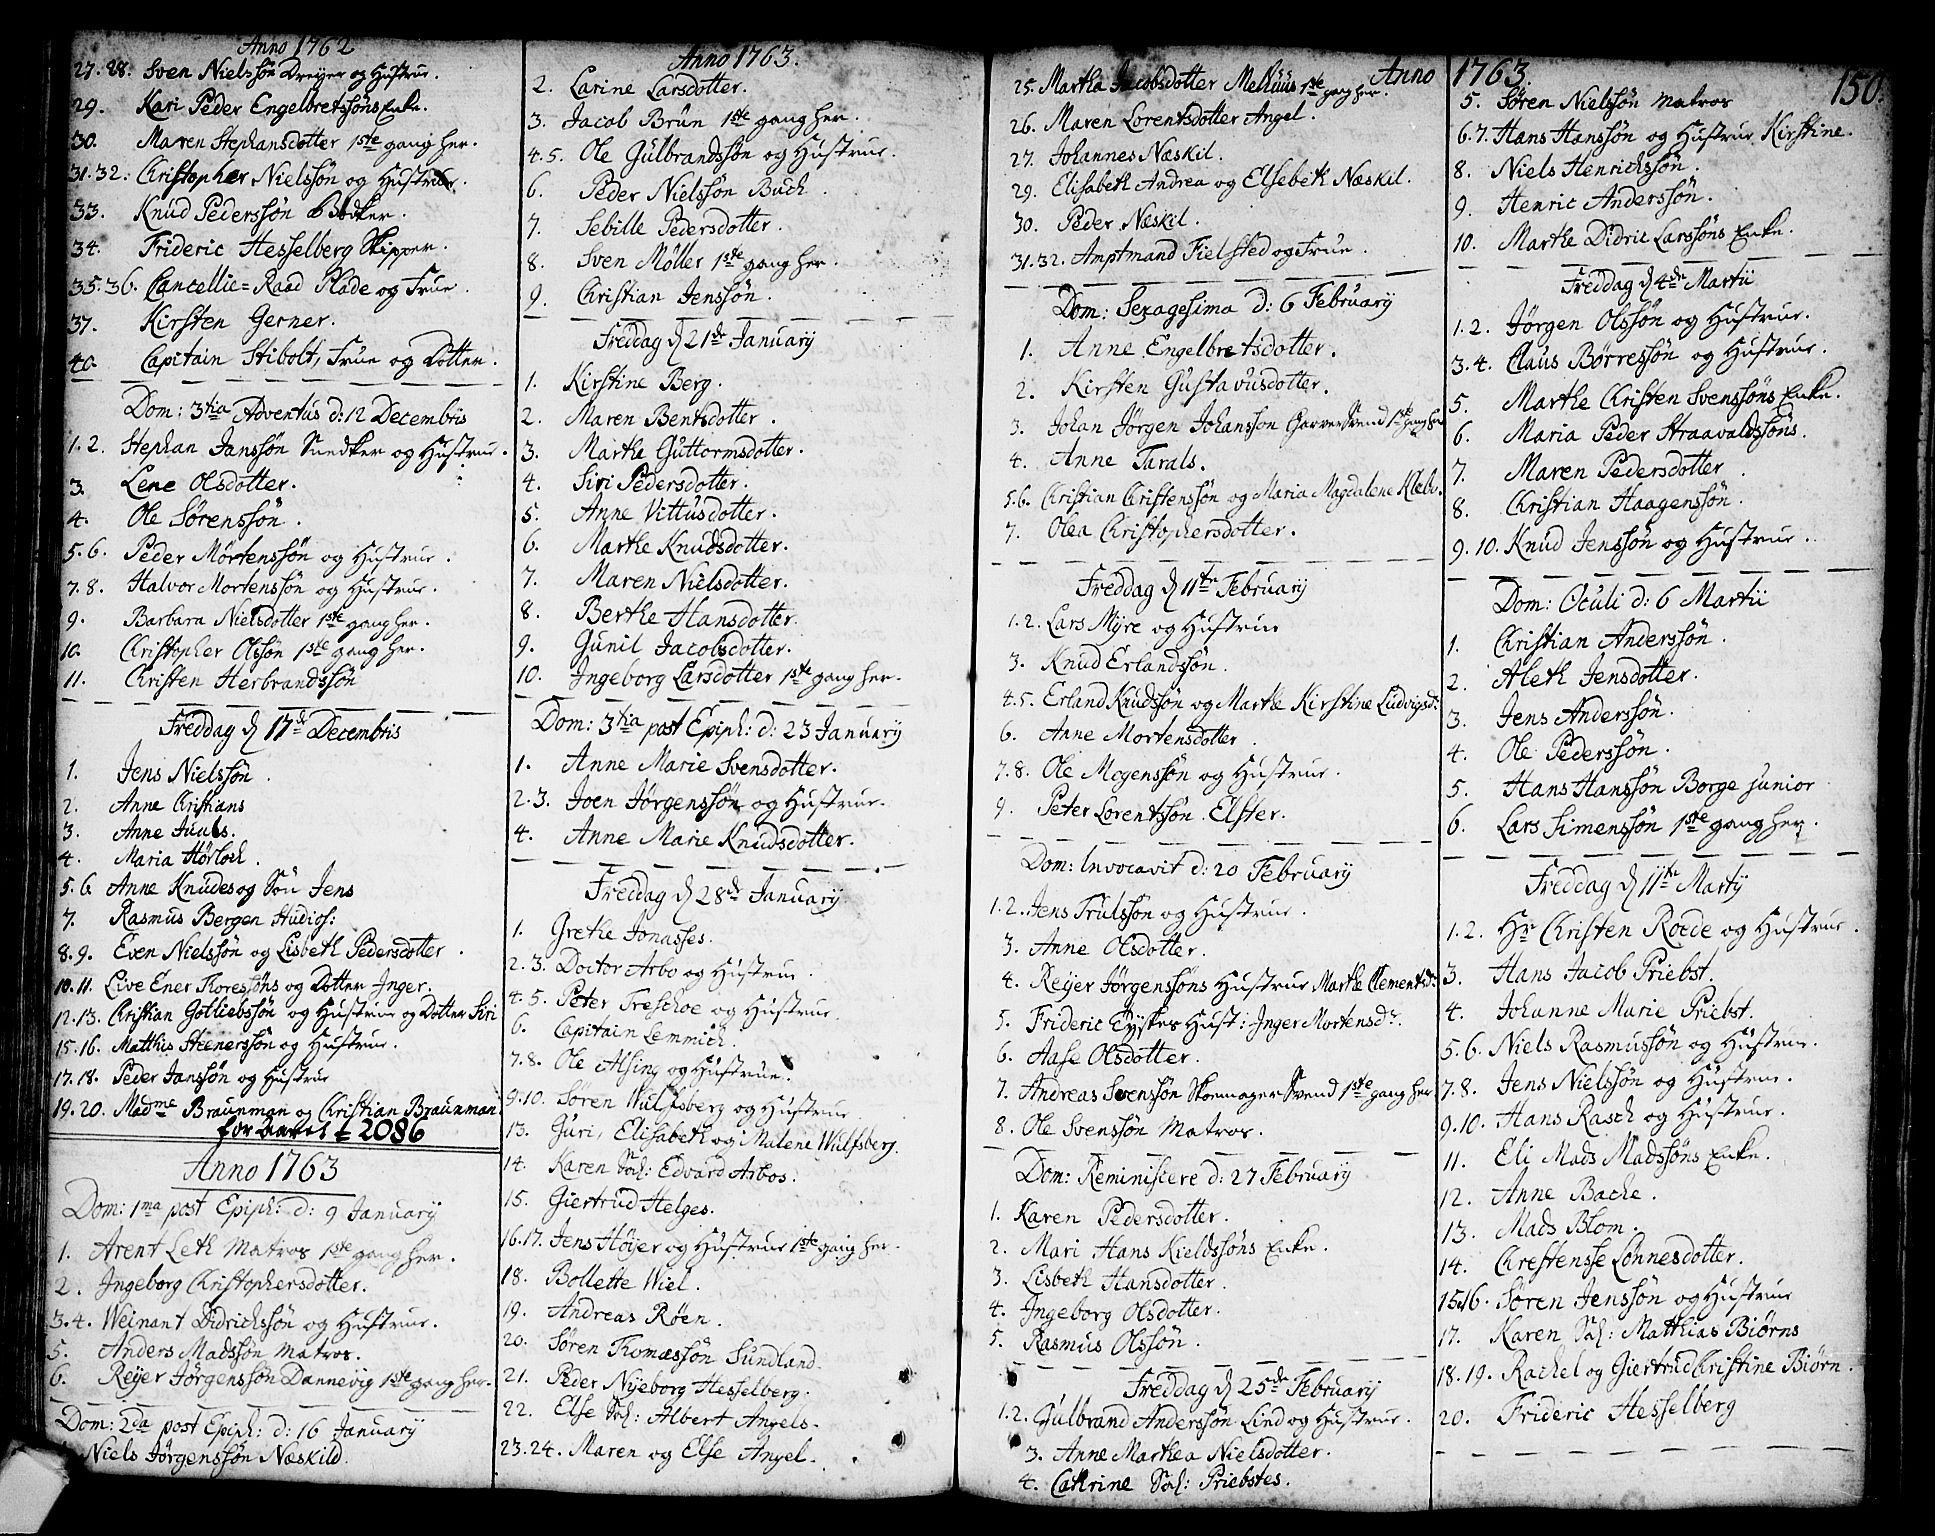 Anno 1762
27. 28. Sven Nielssön Dreyer og Hustrue.
29. Kari Peder Engelbretssöns Enke.
30. Maren Stephansdotter 1ste gang her.
31. 32. Christopher Nielssön og Hustrue.
33. Knud Pederssön Bödker.
34. Frideric Hesselberg Skipper.
35. 36. Cancellie=Raad Plade og Frue.
37. Kirsten Gerner.
40. Capitain Stibolt, Frue og Dotter.
Dom: 3tia Adventus d: 12 Decembris
1. 2. Stephan Janssön Snedker og Hustrue.
3. Lene Olsdotter.
4. Ole Sörenssön.
5. 6. Peder Mortenssön og Hustrue.
7. 8. Halvor Mortenssön og Hustrue.
9. Barbara Nielsdotter 1ste gang her.
10. Christopher Olssön 1ste gang her.
11. Christen Herbrandssön
Freddag d 17de Decembris
1. Jens Nielssön.
2. Anne Christians
3. Anne Juuls.
4. Maria Hörloch.
5. 6 Anne Knudes og Sön Jens
7. Rasmus Bergen Studios:
8. 9. Even Nielssön og Lisbeth Pedersdotter.
10. 11. Live Ener Thoressöns og Dotter Inger.
12. 13. Christian Gotliebssön og Hustrue og Dotter Siri
15. 16. Matthis Steenerssön og Hustrue.
17. 18. Peder Janssön og Hustrue
19. 20. Madme Braunman og Christian Braunman
for Aaret 2086
Anno 1763
Dom: 1ma post Epiph: d: 9 January
1. Arent Leth Matros 1ste gang her.
2. Ingeborg Christophersdotter.
3. 4. Weinant Didrichssön og Hustrue.
5. Anders Madssön Matros.
6. Reyer Jörgenssön Dannevig 1ste gang her.
Dom: 2da post Epiph: d: 16 January
Niels Jörgenssön Næskild.
Anno 1763.
2. Larine Larsdotter.
3. Jacob Brun 1ste gang her.
4. 5. Ole Gulbrandssön og Hustrue.
6. Peder Nielssön Buch
7. Sebille Pedersdotter.
8. Sven Möller 1ste gang her.
9. Christian Jenssön.
Freddag d 21de January
1. Kirstine Berg.
2. Maren Bentsdotter.
3. Marthe Guttormsdotter.
4. Siri Pedersdotter.
5. Anne Vittusdotter.
6. Marthe Knudsdotter.
7. Maren Nielsdotter.
8. Berthe Hansdotter.
9. Gunil Jacobsdotter.
10. Ingeborg Larsdotter 1ste gang her.
Dom: 3tia post Epiph: d: 23 January
1. Anne Marie Svensdotter.
2. 3. Joen Jörgenssön og Hustrue.
4. Anne Marie Knudsdotter.
Freddag d 28de January
1. Grethe Jonasses.
2. 3. Doctor Arbo og Hustrue.
4. 5. Peter Treschoe og Hustrue.
6. Capitain Lemmich.
7. 8. Ole Alsing og Hustrue.
9. 10. Sören Wulfsberg og Hustrue
13. Guri, Elisabeth og Malene Wulfsberg.
14. Karen Sal: Edvard Arbos.
15. Giertrud Helges.
16. 17. Jens Höyer og Hustrue 1ste gang her.
18. Bollette Wiel.
19. Andreas Röen.
20. Sören Thomæssön Sundland.
21. Peder Nyeborg Hesselberg.
22. Else Sal: Albert Angels.
23. 24. Maren og Else Angel.
Anno 1763.
25. Martha Jacobsdotter Melhuus 1ste gang her.
26. Maren Lorentsdotter Angel.
27. Johannes Næskil.
29. Elisabeth Andrea og Elsebeth Næskil.
30. Peder Næskil.
31. 32. Amptmand Fielsted og Frue.
Dom: Sexagesima d: 6 February
1. Anne Engelbretsdotter.
2. Kirsten Gustavusdotter.
3. Johan Jörgen Johanssön Garver Svend 1ste gang her
4. Anne Tarals.
5. 6. Christian Christenssön og Maria Magdalene Klebr.
7. Olea Christophersdotter.
Freddag d 11te February
1. 2. Lars Myre og Hustrue
3. Knud Erlandssön.
4. 5. Erland Knudssön og Marthe Kirstine Ludvigsdr.
6. Anne Mortensdotter.
7. 8. Ole Mogenssön og Hustrue.
9. Peter Lorentssön Elster.
Dom: Invocavit d: 20 February
1. 2. Jens Trulssön og Hustrue.
3. Anne Olsdotter.
4. Reyer Jörgenssöns Hustrue Marthe Clementsdr
5. Frideric Tyskes Hust: Inger Mortensdr.
6. Aase Olsdotter.
7. Andreas Svenssön Skomager Svend 1ste gang her
8. Ole Svenssön Matros.
Dom: Reminiscere d: 27 February
1. Karen Pedersdotter.
2. Mari Hans Kieldssöns Enke.
3. Lisbeth Hansdotter.
4. Ingeborg Olsdotter.
5. Rasmus Olssön.
Freddag d 25de February
1. 2. Gulbrand Anderssön Lind og Hustrue.
3. Anne Marthea Nielsdotter.
4. Cathrine Sal: Priebstes.
150.
5. Sören Nielssön Matros
6. 7. Hans Hanssön og Hustrue Kirstine.
8. Niels Henrichssön.
9. Henric Anderssön.
10. Marthe Didric Larssöns Enke.
Freddag d 4de Martii
1. 2. Jörgen Olssön og Hustrue.
3. 4. Claus Börressön og Hustrue.
5. Marthe Christen Svenssöns Enke.
6. Maria Peder Straavaldssöns.
7. Maren Pedersdotter.
8. Christian Haagenssön.
9. 10. Knud Jenssön og Hustrue.
Dom: Oculi d: 6 Martii
1. Christian Anderssön.
2. Aleth Jensdotter.
3. Jens Anderssön.
4. Ole Pederssön.
5. Hans Hanssön Borge junior
6. Lars Simenssön 1ste gang her.
Freddag d 11te Marty
1. 2. Hr Christen Roede og Hustrue.
3. Hans Jacob Priebst.
4. Johanne Marie Priebst.
5. 6. Niels Rasmussön og Hustrue.
7. 8. Jens Nielssön og Hustrue.
9. 10. Hans Rasch og Hustrue.
11. Eli Mads Madssöns Enke.
12. Anne Bache.
13. Mads Blom.
14. Chrestense Lonnesdotter.
15. 16. Sören Jenssön og Hustrue
17. Karen Sal: Matthias Biörns
18. 19. Rachel og Giertrud Christine Biörn.
20. Frideric Hesselberg